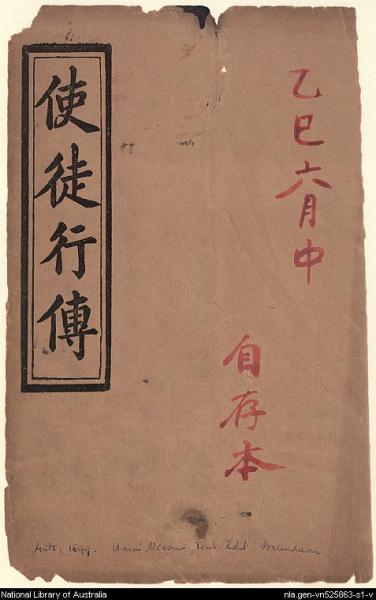 乙巳六月中
自存本
使徒行傳
Acts, 1899. Union Version Tent. Edit. Mandarin.
National Library of Australia
nla.gen-vn525863-s1-v